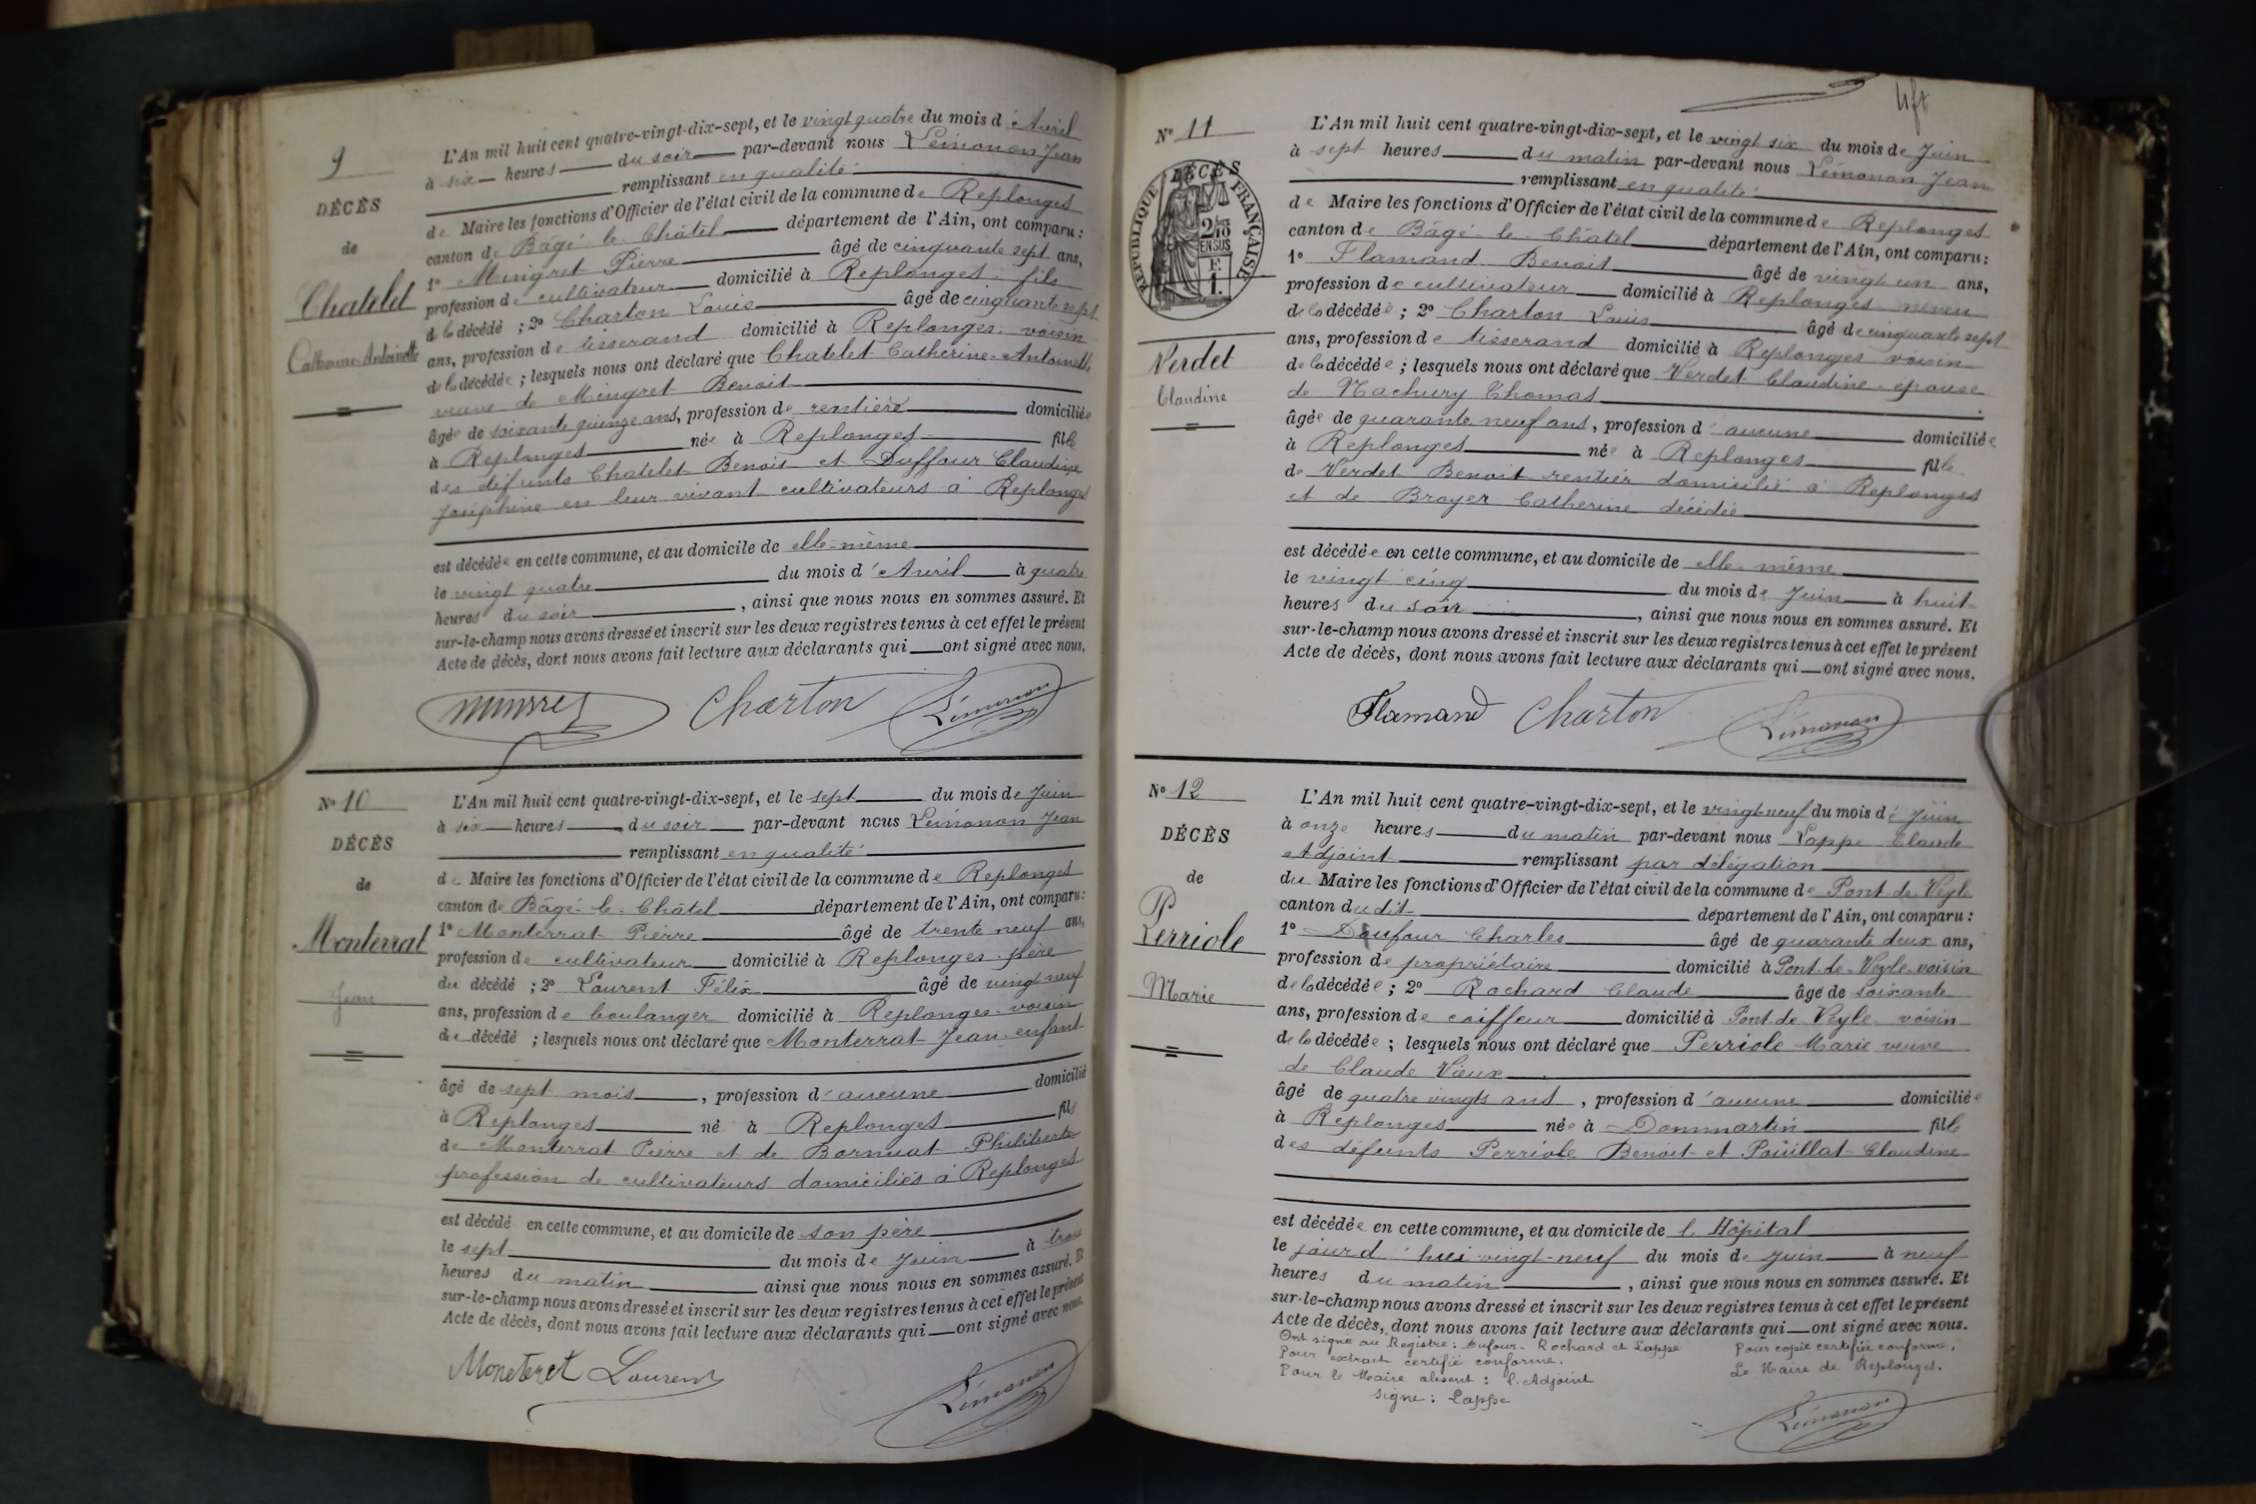 9
DÉCÈS
de
Chatelet
Catherine-Antoinette
L'An mil huit cent quatre-vingt-dix-sept, et le vingt quatre du mois d'Avril
à six heures du soir par-devant nous Lémonon Jean
remplissant en qualité
de Maire les fonctions d'Officier de l'état civil de la commune de Replonges
canton de Bâgé-le-Châtel département de l'Ain, ont comparu :
1° Mingret Pierre âgé de cinquante sept ans,
profession de cultivateur domicilié à Replonges fils
de la décédé ; 2° Charton Louis âgé de cinquante sept
ans, profession de tisserand domicilié à Replonges voisin
de la décédée ; lesquels nous ont déclaré que Chatelet Catherine-Antoinette
veuve de Mingret Benoit
âgée de soixante quinze ans, profession de rentière domiciliée
à Replonges née à Replonges fille
des défunts Chatelet Benoit et Duffour Claudine
Joséphine en leur vivant cultivateurs à Replonges
est décédée en cette commune, et au domicile de elle-même
le vingt quatre du mois d'Avril à quatre
heures du soir, ainsi que nous nous en sommes assuré. Et
sur-le-champ nous avons dressé et inscrit sur les deux registres tenus à cet effet le présent
Acte de décès, dont nous avons fait lecture aux déclarants qui ont signé avec nous.
Charton Lémonon
N° 10
DÉCÈS
de
Monterrat
Jean
L'An mil huit cent quatre-vingt-dix-sept, et le sept du mois de Juin
à six heures du soir par-devant nous Lémonon Jean
remplissant en qualité
de Maire les fonctions d'Officier de l'état civil de la commune de Replonges
canton de Bâgé-le-Châtel département de l'Ain, ont comparu :
1° Monterrat Pierre âgé de trente neuf ans,
profession de cultivateur domicilié à Replonges père
du décédé ; 2° Laurent Félix âgé de vingt neuf
ans, profession de boulanger domicilié à Replonges voisin
du décédé ; lesquels nous ont déclaré que Monterrat Jean enfant
âgé de sept mois, profession d'aucune domicilié
à Replonges né à Replonges fils
de Monterrat Pierre et de Bornuat Philiberte
profession de cultivateurs domiciliés à Replonges
est décédé en cette commune, et au domicile de son père
le sept du mois de Juin à trois
heures du matin ainsi que nous nous en sommes assuré. Et
sur-le-champ nous avons dressé et inscrit sur les deux registres tenus à cet effet le présent
Acte de décès, dont nous avons fait lecture aux déclarants qui ont signé avec nous.
Monteret Laurent Lémonon
N° 11
DÉCÈS
RÉPUBLIQUE FRANÇAISE
2/10
EN SUS
F.
1.
Verdet
Claudine
L'An mil huit cent quatre-vingt-dix-sept, et le vingt six du mois de Juin
à sept heures du matin par-devant nous Lémonon Jean
remplissant en qualité
de Maire les fonctions d'Officier de l'état civil de la commune de Replonges
canton de Bâgé-le-Châtel département de l'Ain, ont comparu :
1° Flamand Benoit âgé de vingt un ans,
profession de cultivateur domicilié à Replonges neveu
de la décédée ; 2° Charton Louis âgé de cinquante sept
ans, profession de tisserand domicilié à Replonges voisin
de la décédée ; lesquels nous ont déclaré que Verdet Claudine épouse
de Machury Thomas
âgée de quarante neuf ans, profession d'aucune domiciliée
à Replonges née à Replonges fille
de Verdet Benoit rentier domicilié à Replonges
et de Broyer Catherine décédée
est décédée en cette commune, et au domicile de elle-même
le vingt cinq du mois de Juin à huit
heures du soir, ainsi que nous nous en sommes assuré. Et
sur-le-champ nous avons dressé et inscrit sur les deux registres tenus à cet effet le présent
Acte de décès, dont nous avons fait lecture aux déclarants qui ont signé avec nous.
Flamand Charton Lémonon
N° 12
DÉCÈS
de
Perriole
Marie
L'An mil huit cent quatre-vingt-dix-sept, et le vingt-neuf du mois de Juin
à onze heures du matin par-devant nous Lappe Claude
Adjoint remplissant par délégation
du Maire les fonctions d'Officier de l'état civil de la commune de Pont-de-Veyle
canton du dit département de l'Ain, ont comparu :
1° Dufour Charles âgé de quarante deux ans,
profession de propriétaire domicilié à Pont-de-Veyle voisin
de la décédée ; 2° Rochard Claude âgé de soixante
ans, profession de coiffeur domicilié à Pont-de-Veyle voisin
de la décédée ; lesquels nous ont déclaré que Perriole Marie veuve
de Claude Vieux
âgé de quatre vingts ans, profession d'aucune domiciliée
à Replonges née à Dommartin fille
des défunts Perriole Benoit et Pouillat Claudine
est décédée en cette commune, et au domicile de l'Hôpital
le jourd'hui vingt-neuf du mois de Juin à neuf
heures du matin, ainsi que nous nous en sommes assuré. Et
sur-le-champ nous avons dressé et inscrit sur les deux registres tenus à cet effet le présent
Acte de décès, dont nous avons fait lecture aux déclarants qui ont signé avec nous.
Ont signé au Registre : Dufour. Rochard et Lappe
Pour extrait certifié conforme.
Pour le Maire absent : l'Adjoint
signé : Lappe
Pour copie certifiée conforme.
Le Maire de Replonges.
Lémonon